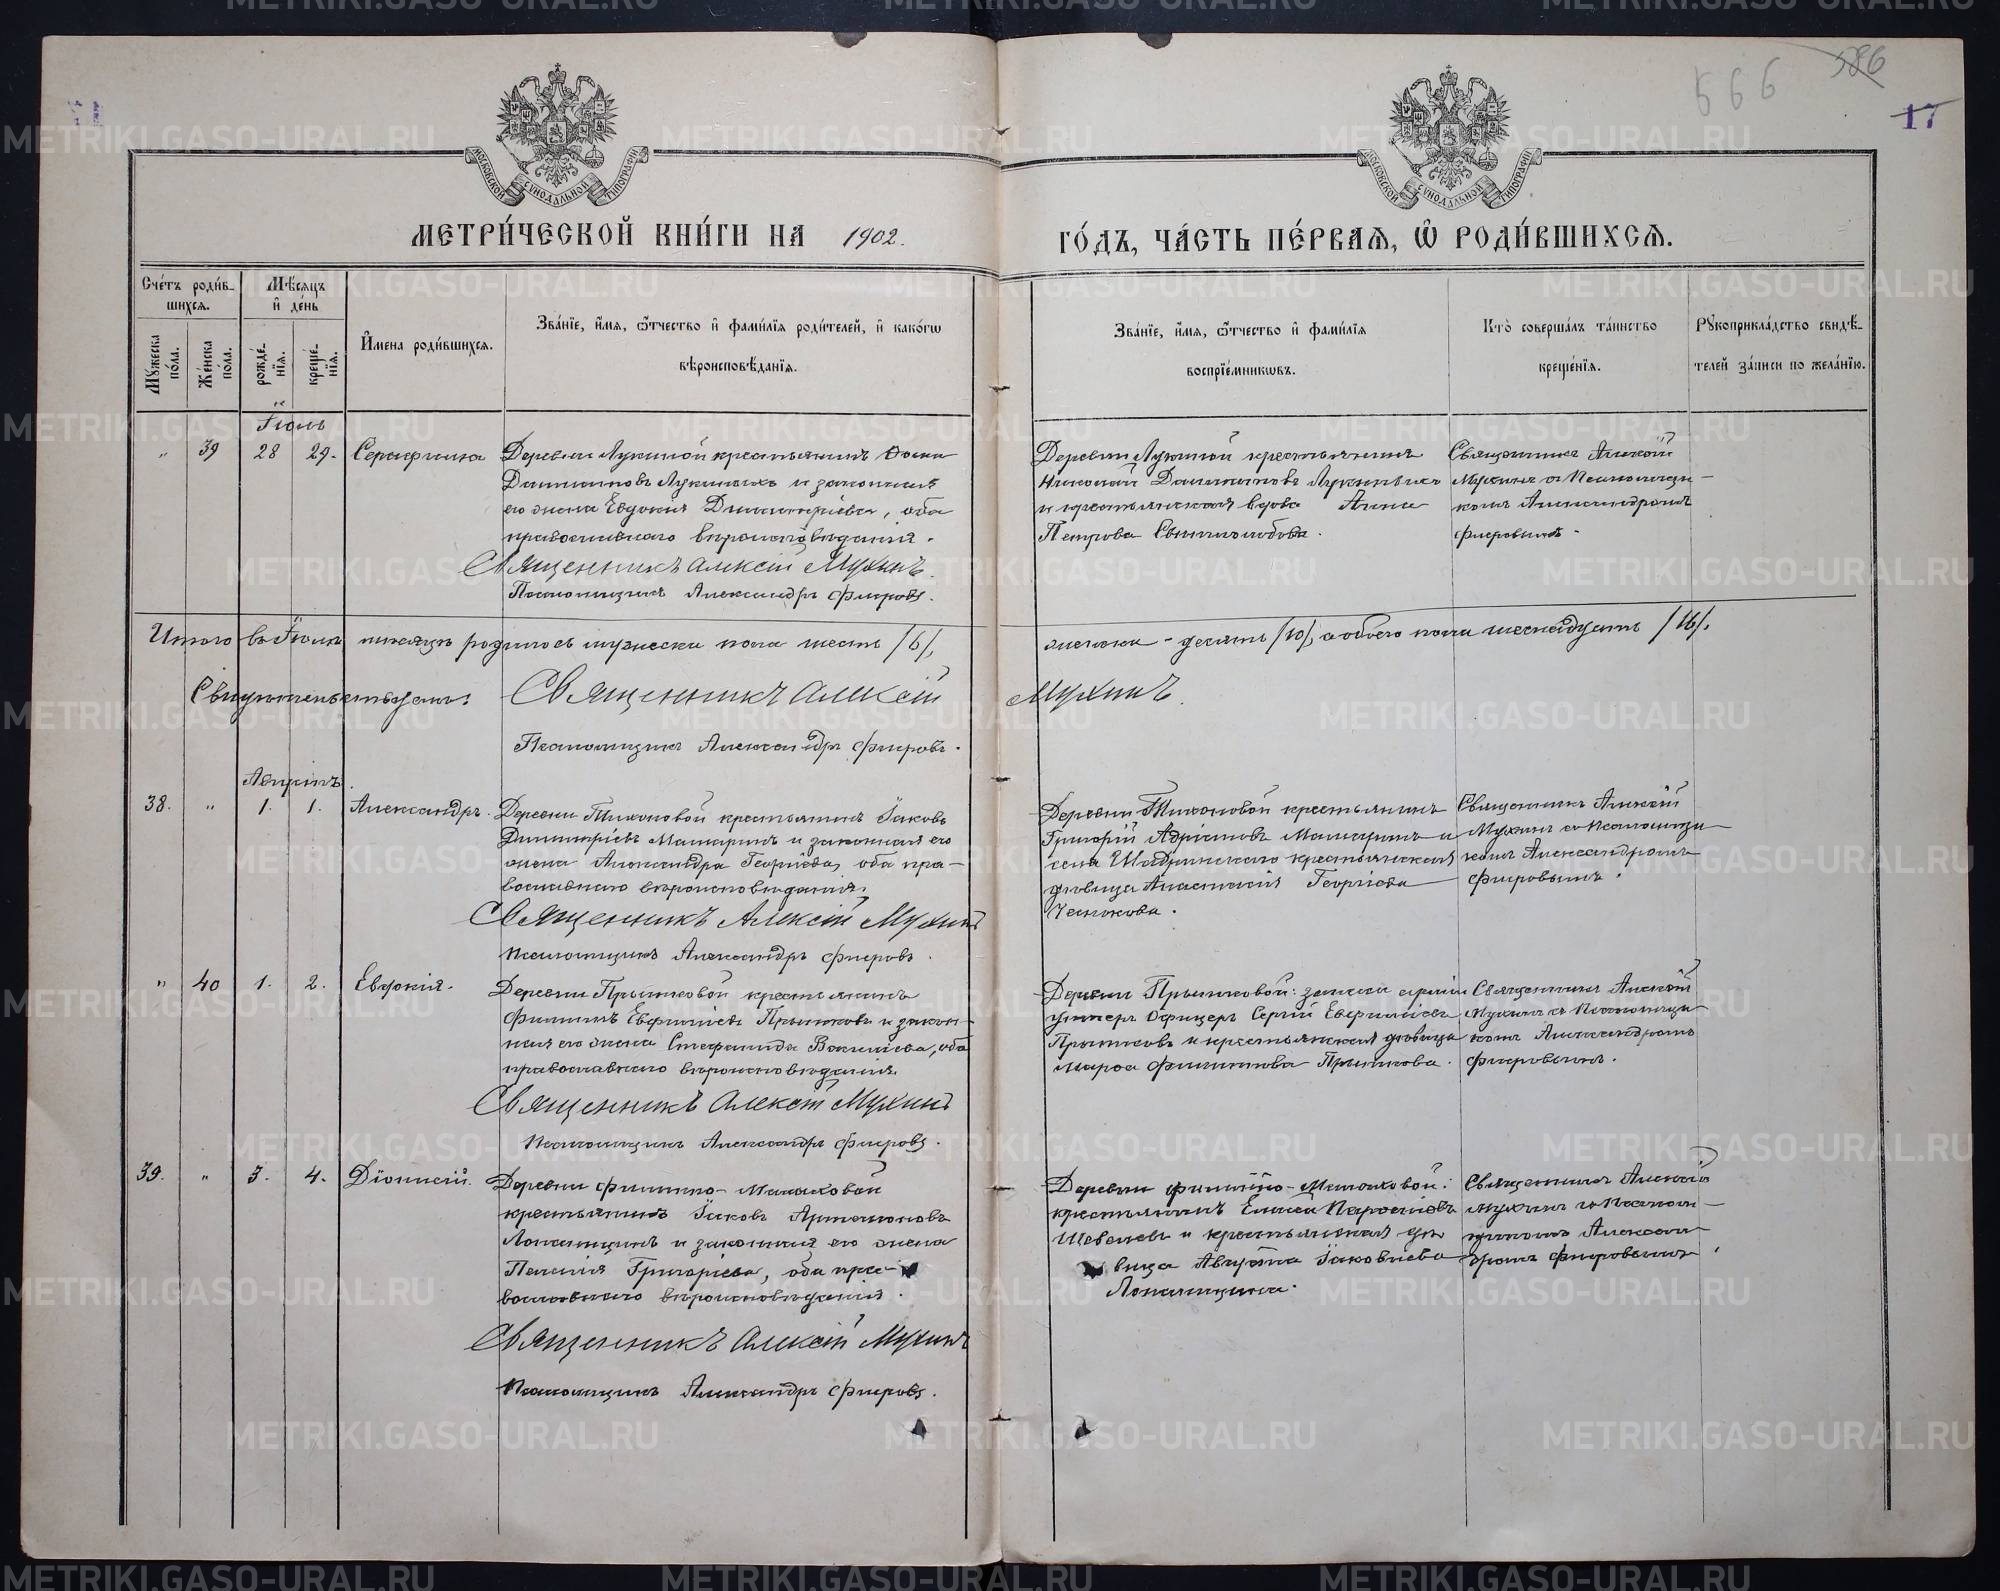 566
586
17
МОСКОВСКОЙ СѴНОДАЛЬНОЙ ТИПОГРАФІИ
МОСКОВСКОЙ СѴНОДАЛЬНОЙ ТИПОГРАФІИ
МЕТРИ́ЧЕСКОЙ КНИ́ГИ НА 1902.
ГО́ДЪ, ЧА́СТЬ ПЕ́РВАѦ, Ѡ РОДИ́ВШИХСѦ.
Сче́тъ роди́в-
шихсѧ.
Мѣ́сѧцъ
и҆ де́нь
Мꙋ́жеска по́ла.
Же́нска по́ла.
рожде́-нїѧ.
креще́-нїѧ.
И҆мена роди́вшихсѧ.
Зва́нїе, и҆́мѧ, ѻ҆́тчество и҆ фами́лїѧ роди́телей, и҆ како́гѡ
вѣроисповѣ́данїѧ.
Зва́нїе, и҆́мѧ, ѻ҆́тчество и҆ фами́лїѧ
воспрїе́мникѡвъ.
Кто̀ соверша́лъ та́инство
креще́нїѧ.
Рꙋкоприкла́дство свидѣ́-
телей за́писи по жела́нїю.
Іюль
" 39 28 29. Серафима
Деревни Лукиной крестьянинъ
Даниловъ Лукиныхъ и законная
его жена Евдокія Димитріева, оба
православнаго вѣроисповѣданія.
Священникъ Алексій Мухинъ.
Псаломщикъ Александръ Фигровъ.
Деревни Лукиной крестьянинъ
Николай Лукиныхъ
и крестьянская вдова Анна
Петрова
Священникъ Алексій
Мухинъ съ Псаломщи-
комъ Александромъ
Фигровымъ.
Итого въ Іюлѣ мѣсяцѣ родилось мужеска пола шесть /6/,
женска - десять /10/, а обоего пола шестнадцать /16/.
Свидѣтельствуемъ: Священникъ Алексій
Мухинъ.
Псаломщикъ Александръ Фигровъ.
Августъ.
38. " 1. 1. Александръ.
Деревни Тихоновой крестьянинъ Іаковъ
Димитріевъ Машаринъ и законная его
жена Александра Георгіева, оба пра-
вославнаго вѣроисповѣданія.
Священникъ Алексій Мухинъ
Псаломщикъ Александръ Фигровъ.
Деревни Тихоновой крестьянинъ
Григорій Адріановъ Машаринъ и
села крестьянская
дѣвица Анастасія Георгіева
Священникъ Алексій
Мухинъ съ Псаломщи-
комъ Александромъ
Фигровымъ.
" 40 1. 2. Евдокія.
Деревни Прытковой крестьянинъ
Филиппъ Прытковъ и закон-
ная его жена Стефанида Вакилиева, оба
православнаго вѣроисповѣданія.
Священникъ Алексій Мухинъ
Псаломщикъ Александръ Фигровъ.
Деревни Прытковой: запаса арміи
унтеръ Офицеръ Сергій
Прытковъ и крестьянская дѣвица
Марѳа Филиппова Прыткова.
Священникъ Алексій
Мухинъ съ Псаломщи-
комъ Александромъ
Фигровымъ.
39. " 3. 4. Діонисій.
Деревни
крестьянинъ Іаковъ Артемоновъ
Лопатинъ и законная его жена
Пелагія Григоріева, оба пра-
вославнаго вѣроисповѣданія.
Священникъ Алексій Мухинъ
Псаломщикъ Александръ Фигровъ.
Деревни
крестьянинъ Елисей
Шевелевъ и крестьянская дѣ-
вица Августа Іаковлева
Священникъ Алексій
Мухинъ съ Псалом-
щикомъ Алексан-
дромъ Фигровымъ.
METRIKI.GASO-URAL.RU